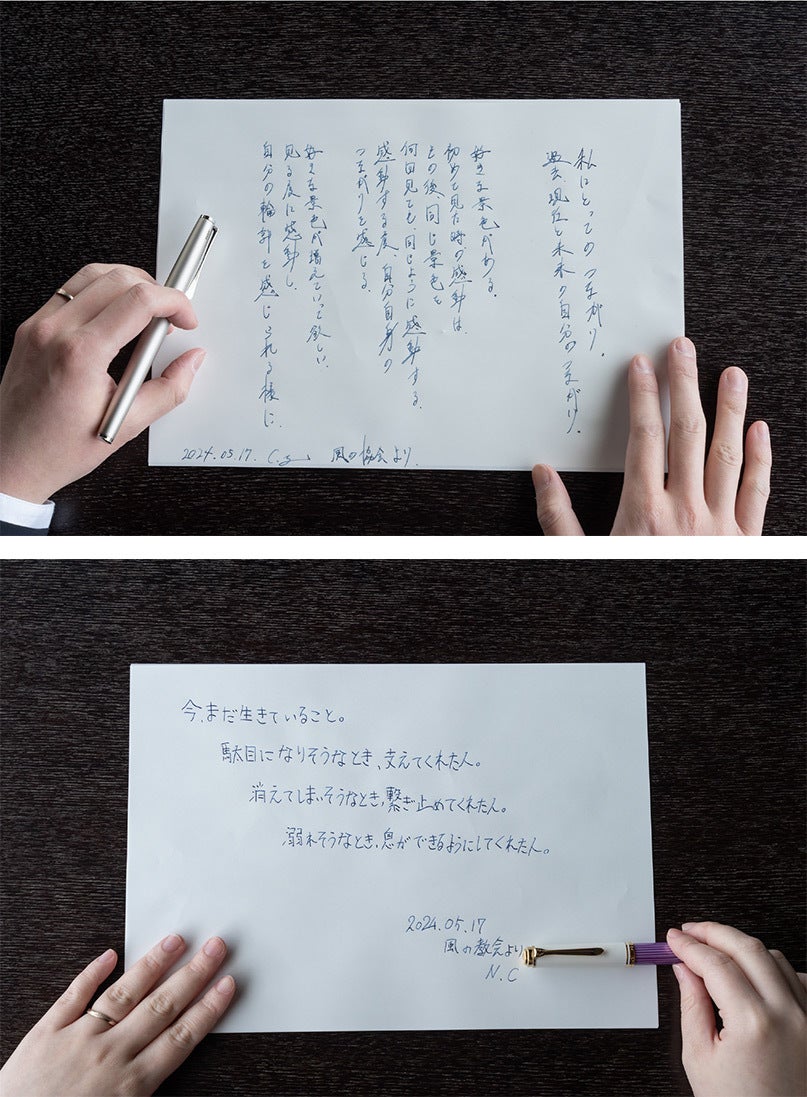 私にとってのつながり。
過去、現在と未来の自分のつながり。
好きな景色がある。
初めて見た時の感動は、
その後、同じ景色を
何回見ても、同じように感動する。
感動する度、自分自身の
つながりを感じる。
好きな景色が増えていって欲しい、
見る度に感動し、
自分の輪郭を感じられる様に。
2024.05.17. C.g 風の協会より、
今、まだ生きていること。
駄目になりそうなとき、支えてくれた人。
消えてしまいそうなとき、繋ぎ止めてくれた人。
溺れそうなとき、息ができるようにしてくれた人。
2024.05.17
風の教会より
N.C